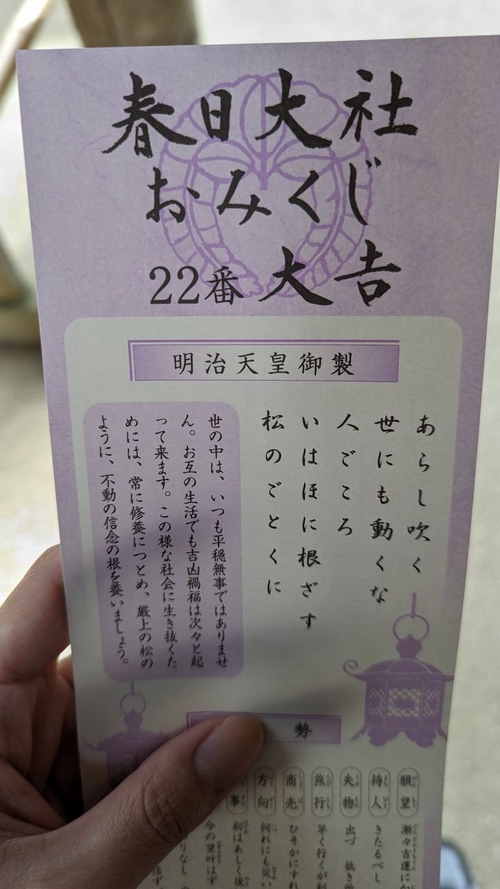 春日大社
おみくじ
22番 大吉
明治天皇御製
あらし吹く
世にも動くな
人ごころ
いはほに根ざす
松のごとくに
世の中は、いつも平穏無事ではありませ
ん。お互の生活でも吉凶禍福は次々と起
って来ます。この様な社会に生き抜くた
めには、常に修養につとめ、巌上の松の
ように、不動の信念の根を養いましょう。
勢
願望 瀬々吉運に
待人 きたるべし
失物 出づ 低き
旅行 早く行くが利
商売 ひそかにすれ
方向 何れにも災い
事 初はあしく後